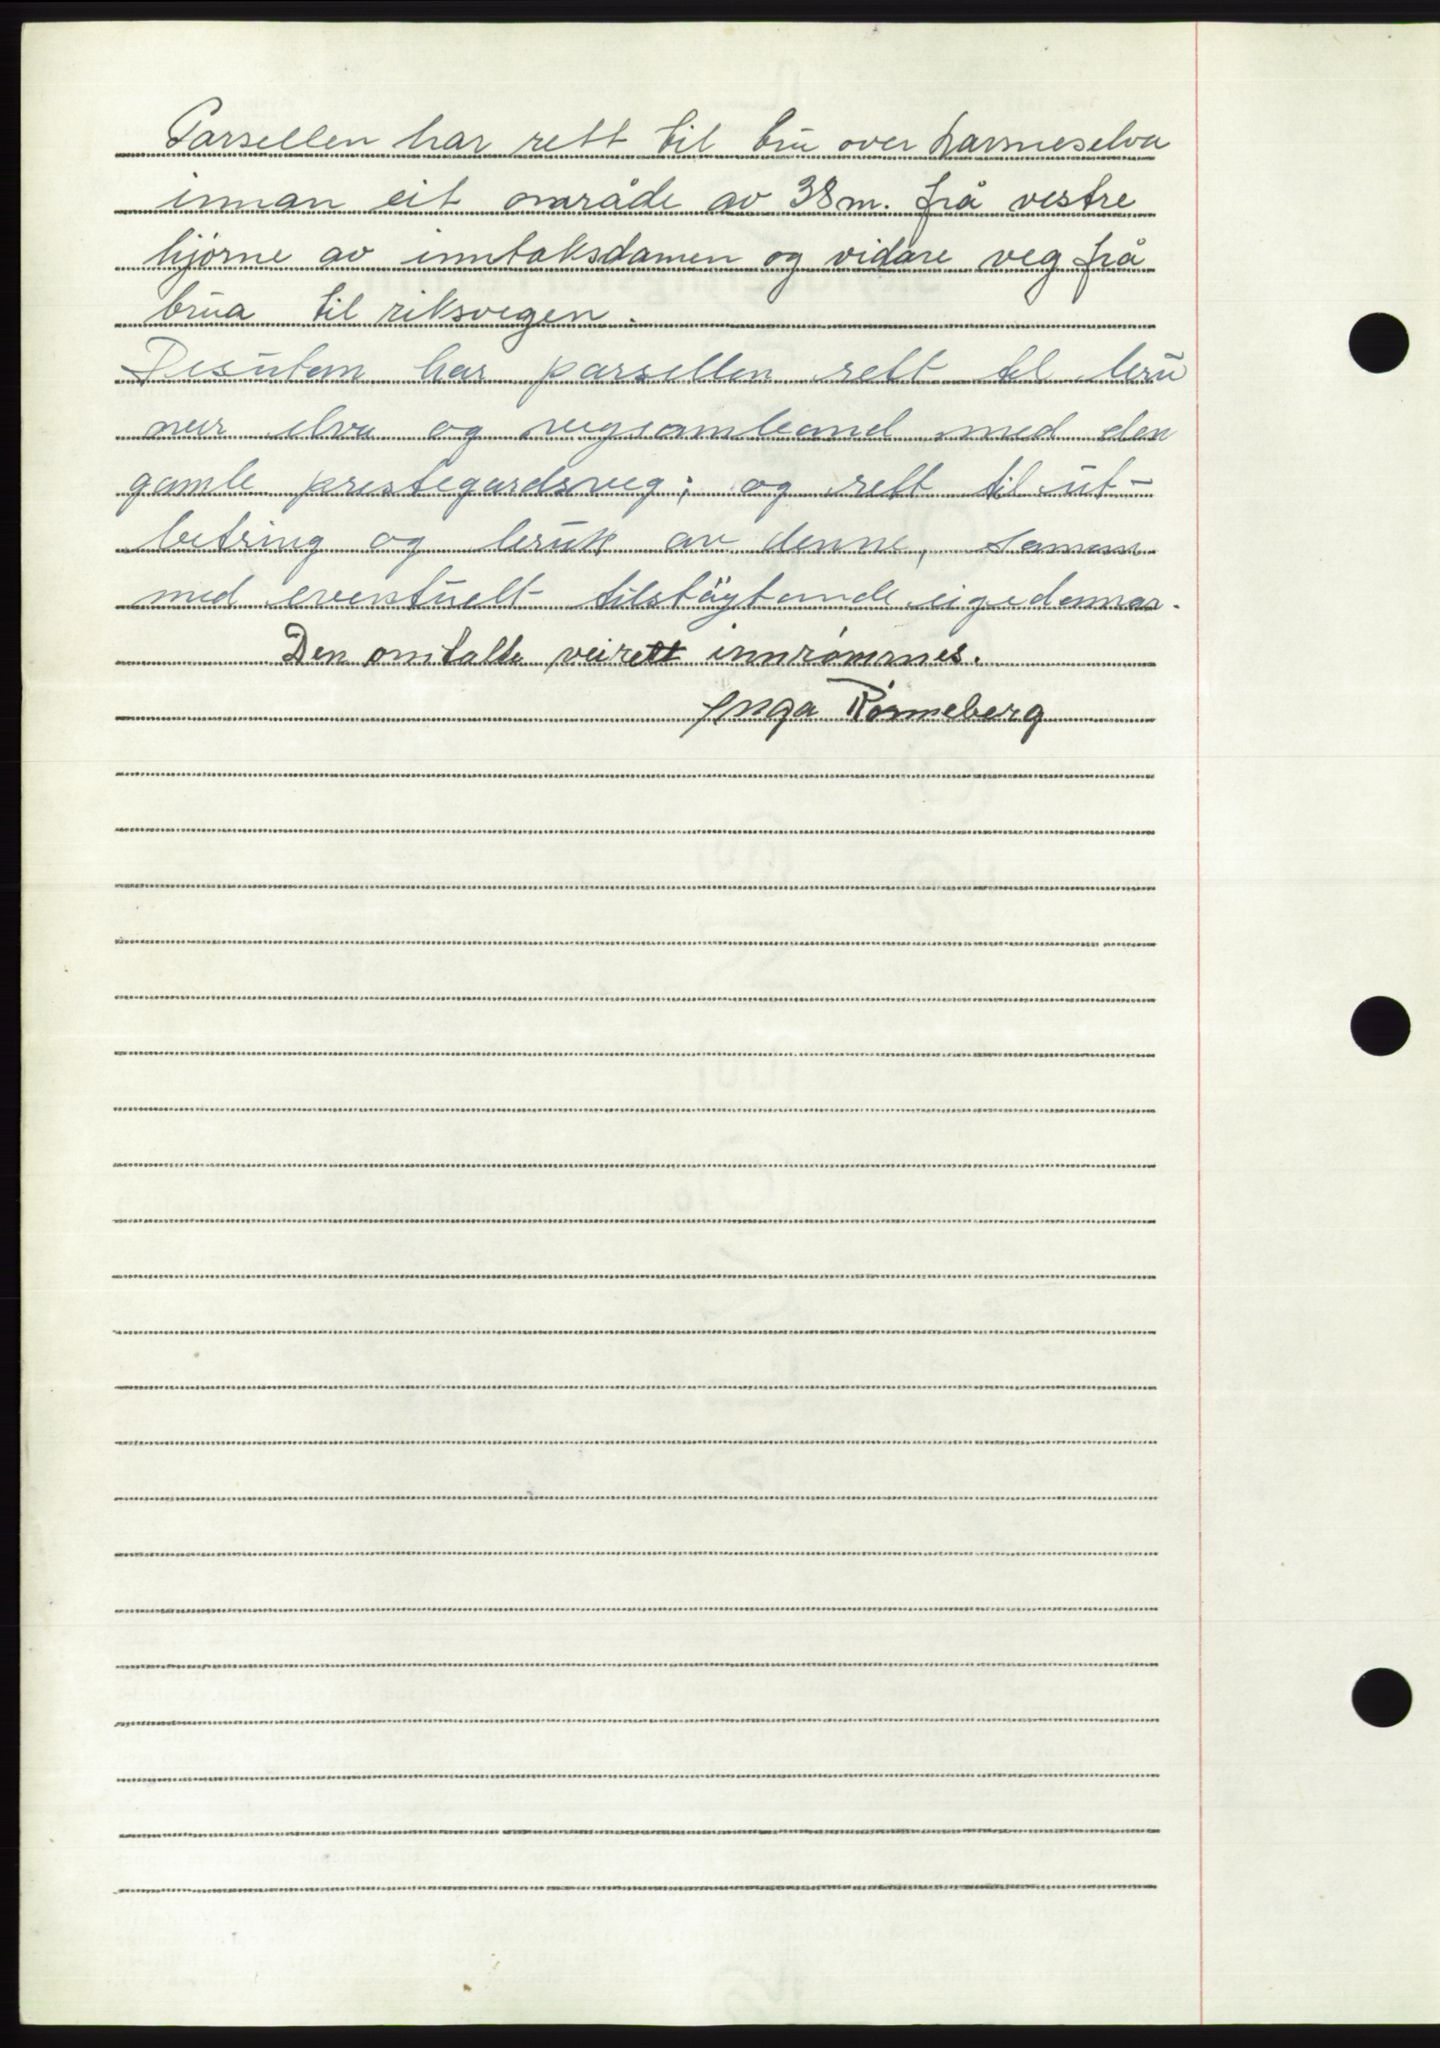 Parsellen har rett til bru over Larsneselva
innan eit område av 38m. frå vestre
hjørne av inntaksdamen og vidare veg frå
brua til riksvegen.
Desutan har parsellen rett til bru
over elva og vegsamband med den
gamle prestegardsveg; og rett til ut-
betring og bruk av denne, saman
med eventuelt tilstöytande eigedomar.
Den omtalte veirett innrømmes.
Inga Rønneberg